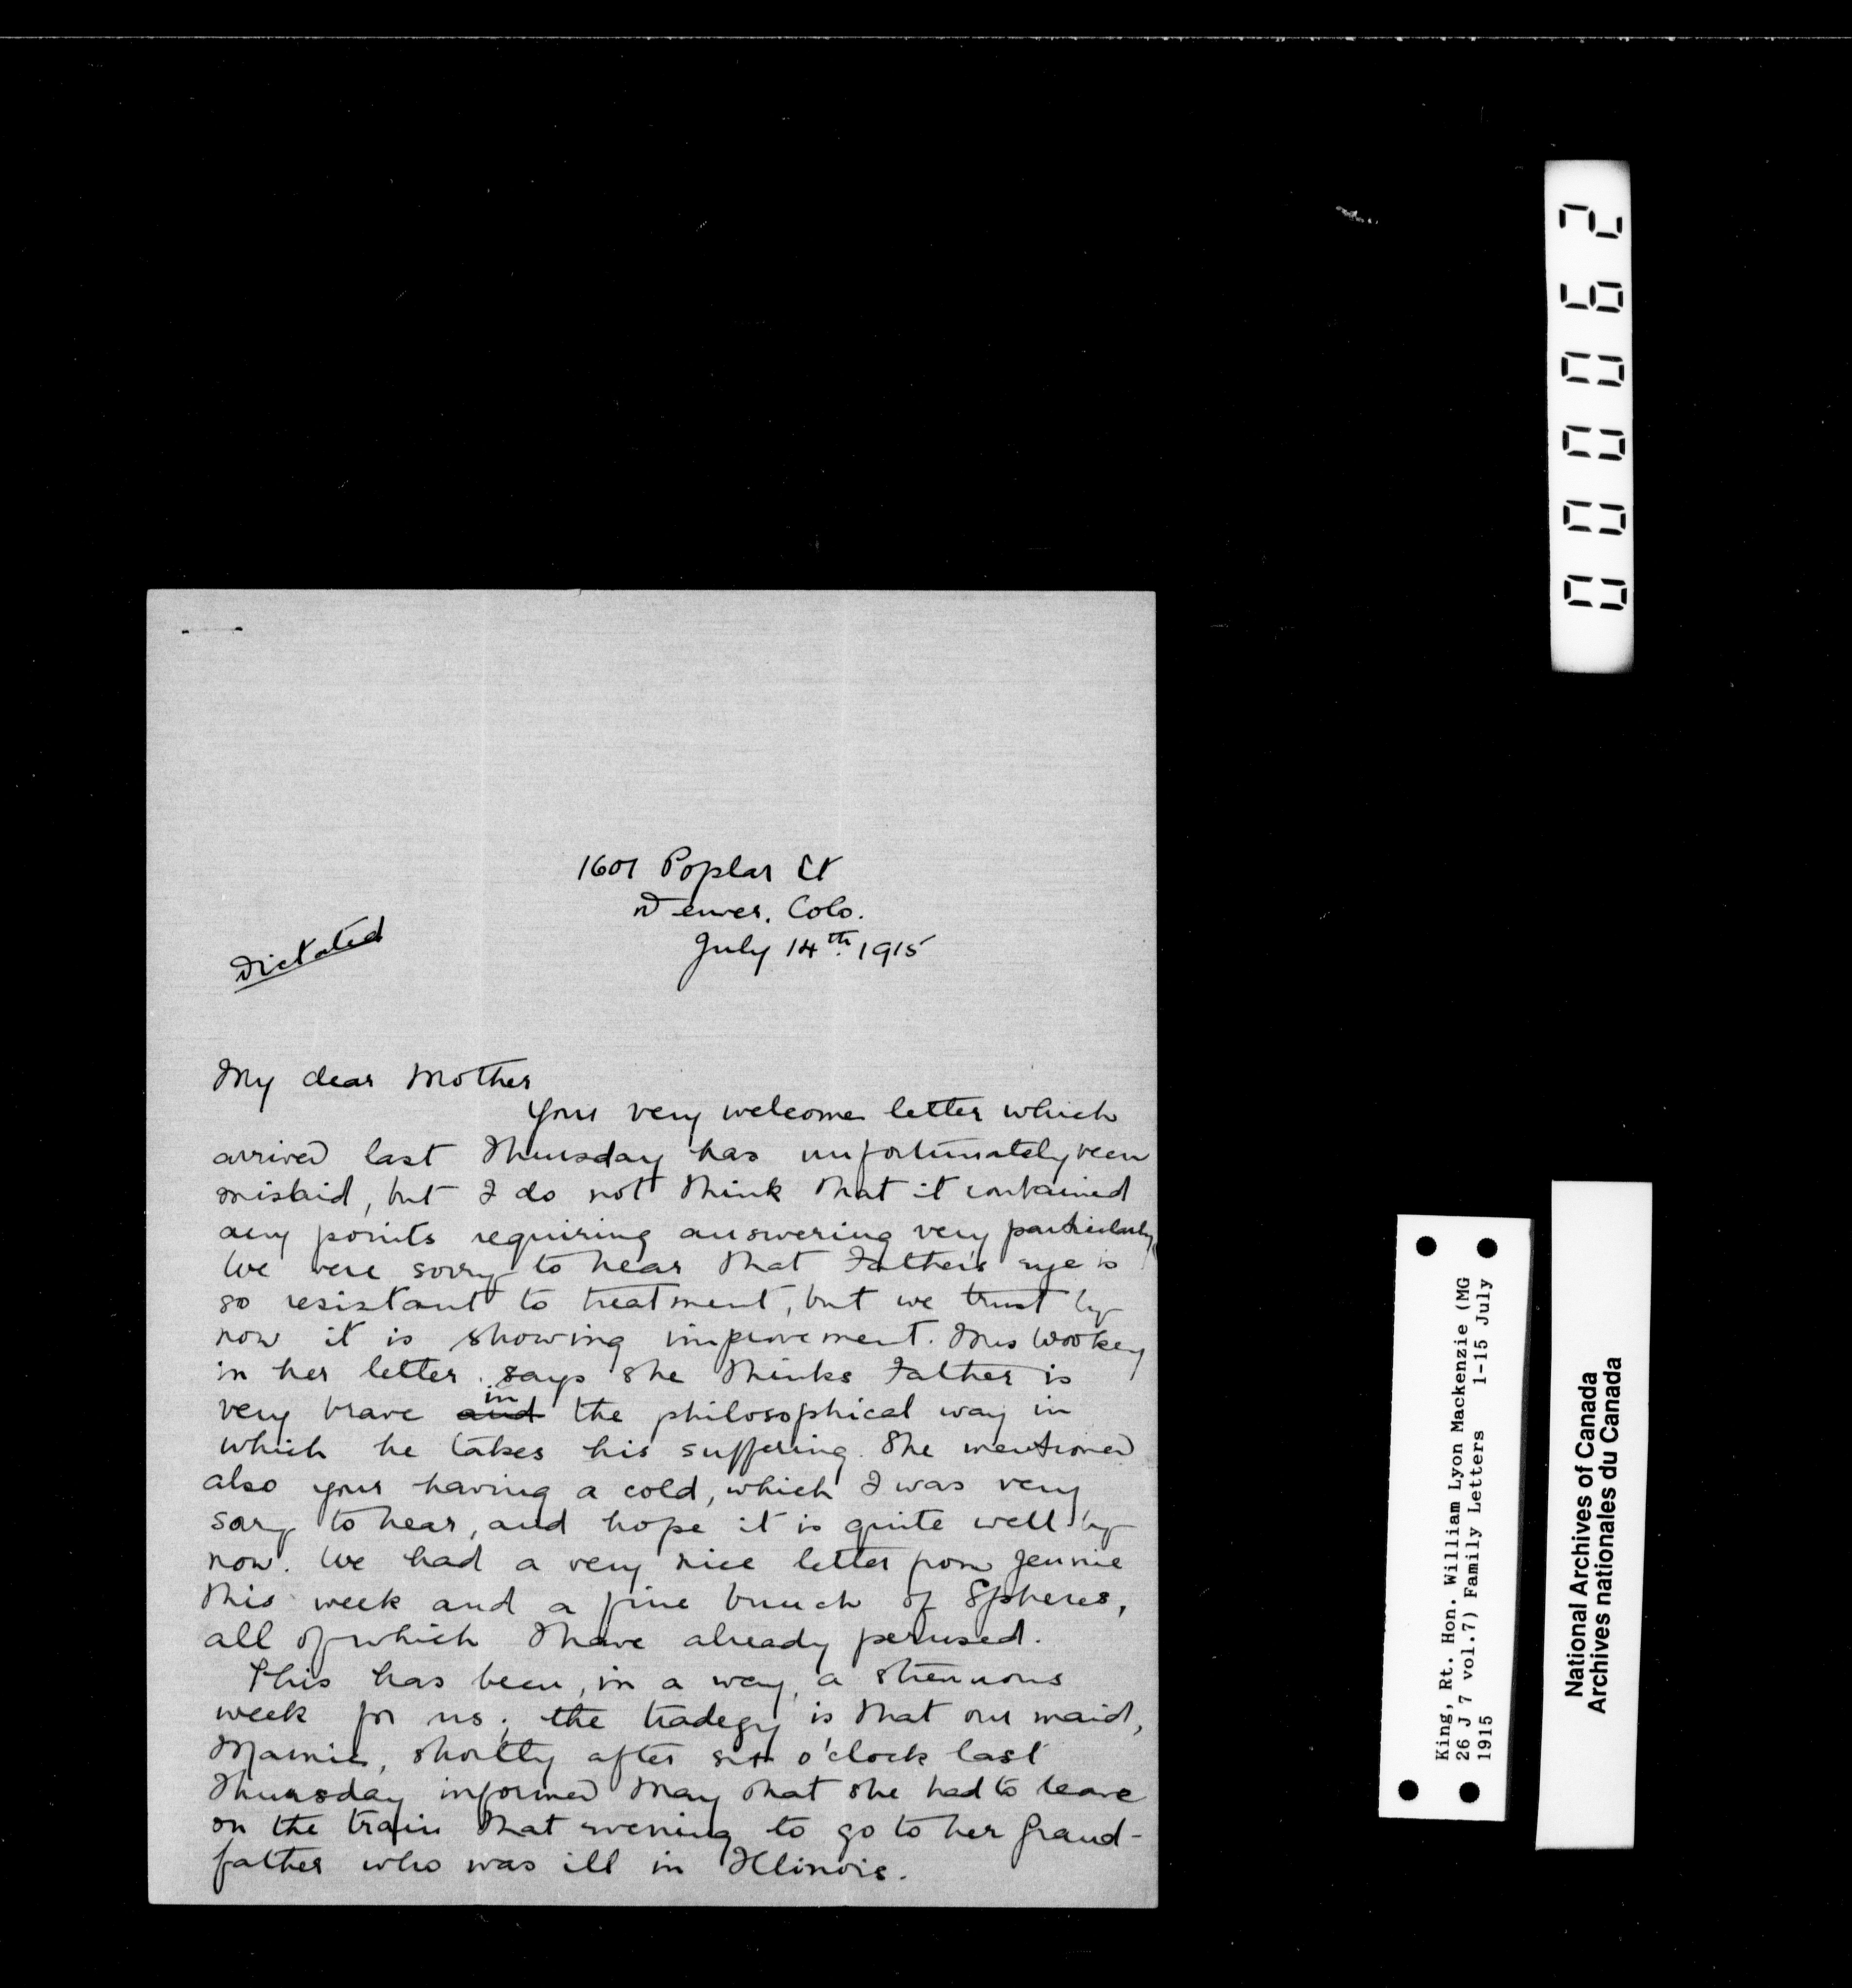 1601 Poplar St
Denver. Colo.
July 14th. 1915
Dictated
My dear Mother
Your very welcome letter which
arrived last Thursday has unfortunately been
mislaid, but I do not think that it contained
any points requiring answering very particularly.
We were sorry to hear that Father's eye is
so resistant to treatment, but we trust by
now it is showing improvement. Mrs Wookey
in her letter says she thinks Father is
very brave and in the philosophical way in
which he takes his suffering. She mentioned
also your having a cold, which I was very
sorry to hear, and hope it is quite well by
now. We had a very nice letter from Jennie
this week and a fine bunch of Spheres,
all of which I have already perused.
This has been, in a way, a strenuous
week for us; the tradegy is that our maid,
Mamie, shortly after six o'clock last
Thursday informed May that she had to leave
on the train that evening to go to her grand-
father who was ill in Illinois.
000062
King, Rt. Hon. William Lyon Mackenzie (MG
26 J 7 vol.7) Family Letters 1-15 July
1915
National Archives of Canada
Archives nationales du Canada